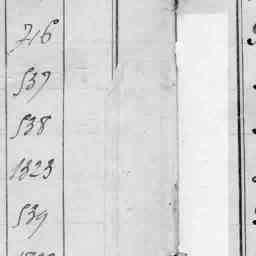 716
537
538
1323
539